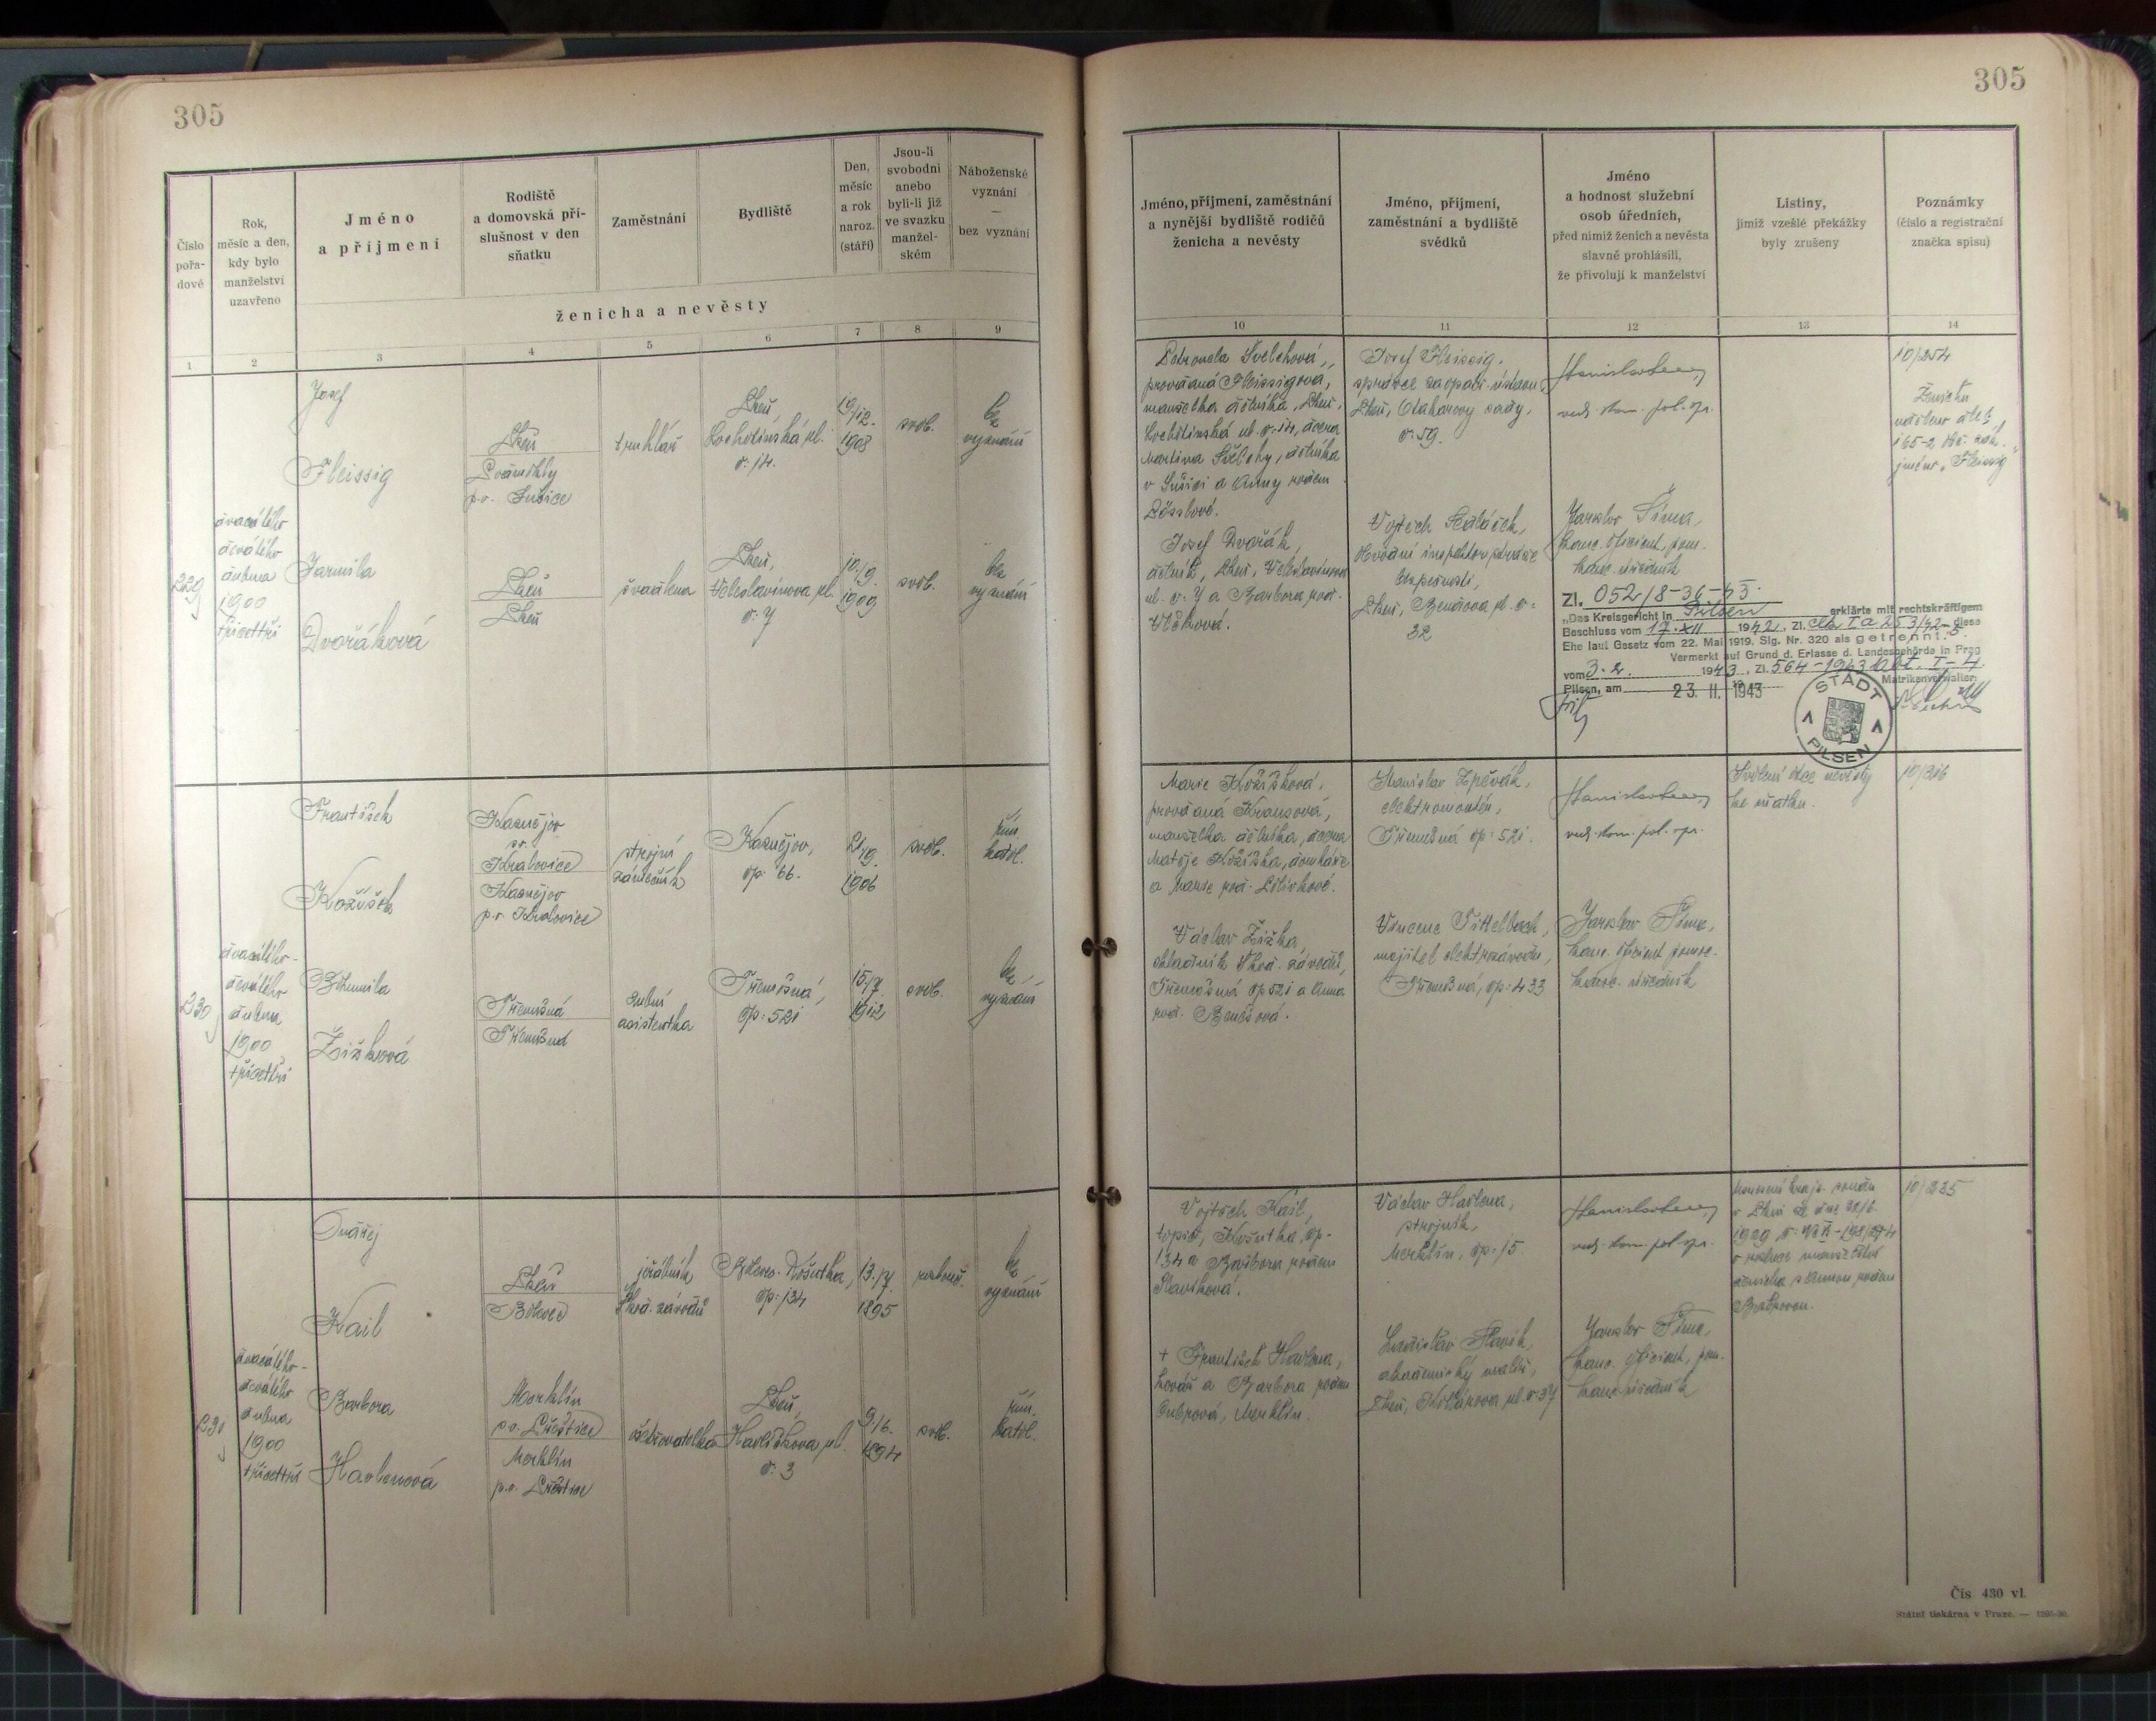 305
305
Číslo
pořa-
dové
Rok,
měsíc a den,
kdy bylo
manželství
uzavřeno
Jméno
a příjmení
Rodiště
a domovská pří-
slušnost v den
sňatku
Zaměstnání
Bydliště
Den,
měsíc
a rok
naroz.
(stáří)
Jsou-li
svobodni
anebo
byli-li již
ve svazku
manžel-
ském
Náboženské
vyznání
—
bez vyznání
ženicha a nevěsty
1 2 3 4 5 6 7 8 9
229
dvacátého
devátého
dubna
1900
třicettři
Josef
Fleissig
Plzeň
p.o. Sušice
truhlář
Plzeň,
Lochotínská ul.
č. 14.
19/12.
1908
svob.
bez
vyznání
Jarmila
Dvořáková
Plzeň
Plzeň
švadlena
Plzeň,
Veleslavínova ul.
č. 7
10./9.
1909
svob.
bez
vyznání
230
dvacátého-
devátého
dubna
1900
třicettři
František
Kožíšek
Kaznějov
p.o.
Kralovice
Kaznějov
p.o. Kralovice
strojní
zámečník
Kaznějov,
čp. 66.
21/9.
1906
svob.
řím.
katol.
Bohumila
Žižková
Třemošná
Třemošná
zubní
asistentka
Třemošná,
čp: 521
15./7.
1912
svob.
bez
vyznání
231
dvacátého-
devátého
dubna
1900
třicettři
Ondřej
Kail
Plzeň
jeřábník
Škod. závodů
Košutka,
čp: 134
13./7.
1895
rozlouč.
bez
vyznání
Barbora
Havlenová
Merklín
p.o. Přeštice
Merklín
p.o. Přeštice
ošetřovatelka
Plzeň,
Havlíčkova ul.
č. 3
9./6.
1894
svob.
řím.
katol.
Jméno, příjmení, zaměstnání
a nynější bydliště rodičů
ženicha a nevěsty
Jméno, příjmení,
zaměstnání a bydliště
svědků
Jméno
a hodnost služební
osob úředních,
před nimiž ženich a nevěsta
slavně prohlásili,
že přivolují k manželství
Listiny,
jimiž vzešlé překážky
byly zrušeny
Poznámky
(číslo a registrační
značka spisu)
10 11 12 13 14
Petronela Švelchová,
provdaná Fleissigová,
manželka dělníka, Plzeň,
Lochotínská ul. č. 14, dcera
Martina Švelchy, dělníka
v Sušici a Anny rozen.
Josef Dvořák,
dělník, Plzeň, Veleslavínova
ul. č. 7 a Barbora roz.
Vlčková.
Josef Fleissig,
správce zaopatř. ústavu,
Plzeň, Otakarovy sady,
č. 59.
Vojtěch Sedláček,
bezpečnosti,
Plzeň, Benešova ul. č:
32
rad. kom. pol. spr.
Jaroslav Šíma,
kanc. oficient, pom.
kanc. úředník
10/254
Ženichu
náleželo dle §
165-2 obč. zák.
jméno „Fleissig“
Zl. 052/8-36-43.
„Das Kreisgericht in Pilsen erklärte mit rechtskräftigem
Beschluss vom 17. XII 1942, Zl. Ck I a 253/42-5. diese
Ehe laut Gesetz vom 22. Mai 1919, Slg. Nr. 320 als getrennt.
Vermerkt auf Grund d. Erlasse d. Landesbehörde in Prag
vom 3. 2. 1943, Zl. 564-1943 Abt. I-4.
Pilsen, am 23. II. 1943
Matrikenverwalter:
STADT
PILSEN
Marie Kožíšková,
provdaná Krausová,
manželka dělníka, dcera
Matěje Kožíška, domkáře
a Marie roz.
Václav Žižka,
skladník Škod. závodů,
Třemošná čp 521 a Anna
roz. Benešová.
Stanislav Zpěvák,
elektromontér,
Třemošná čp: 521.
Vincenc Tittelbach,
majitel elektrozávodu,
Třemošná, čp: 433
rad. kom. pol. spr.
Jaroslav Šíma,
kanc. oficient pomoc.
kanc. úředník
Svolení otce nevěsty
ke sňatku.
10/316
Vojtěch Kail,
topič, Košutka, čp.
134 a Barbora rozen
Slavíková.
+ František Havlena,
kovář a Barbora rozen
Merklín.
Václav Havlena,
strojník,
Merklín, čp: 15.
Ladislav Slavík,
akademický malíř,
Plzeň, Kollárova ul. č. 37
rad. kom. pol. spr.
Jaroslav Šíma,
kanc. oficient, pom.
kanc. úředník
Usnesení krajs. soudu
v Plzni ze dne
1929
o rozluce manželství
ženicha s Annou rozen
10/235
Čís 430 vl.
Státní tiskárna v Praze. —